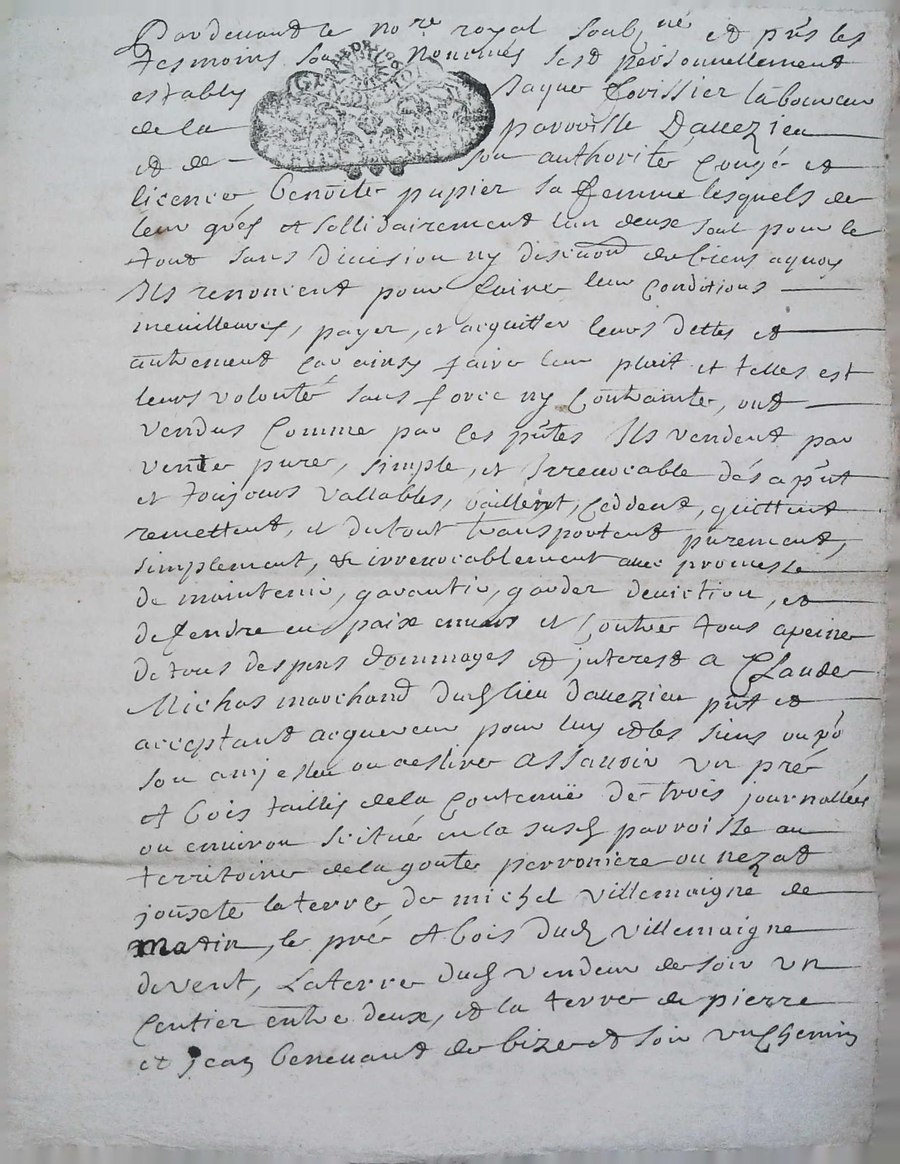 Pardevant le no.re royal soub.né et p̃ns les
tesmoins sous nommés sest personnellement
estably Jaques Corissier laboureur
de la parroisse Dauezieu
et de son authorité Congé et
licence, benoite papier sa femme lesquels de
leur grés et sollidairement lun deux seul pour le
tout sans diuision ny discuon̄ de biens aquoy
Ils renoncent pour faire leur Conditions
meuilleures, payer, et acquitter leurs dettes et
autrement Car ainsy faire leur plait et telles est
leurs volonté sans force ny Contrainte, ont
vendus Comme par Ces p̃ntes Ils vendent par
vente pure, simple, et Irreuocable dés ap̃nt
et toujours vallables, baillent, Ceddent, quittent
remettent, et du tout transportent purement,
simplement, & irreuocablement auec promesse
de maintenir, garantir, garder deuiction, et
defendre en paix enuers et Contre tous apeine
de tous despens dommages et interest a Claude
Michas marchand dud lieu dauezieu p̃nt et
acceptant acquereur pour luy et les siens ou po
son amj esleu ou aeslire Assauoir vn pré
et bois taillis dela Contenuë de trois journallées
ou enuiron scitué en la susd parroisse au
territoire dela goute perroniere ou nezat
jouxte la terre de michel villemaigne de
matin, le pré et bois dud villemaigne
de vent, La terre dud vendeur de soir vn
Sentier entre deux, et la terre de pierre
et jean beneuant de bize et soir vn Chemin